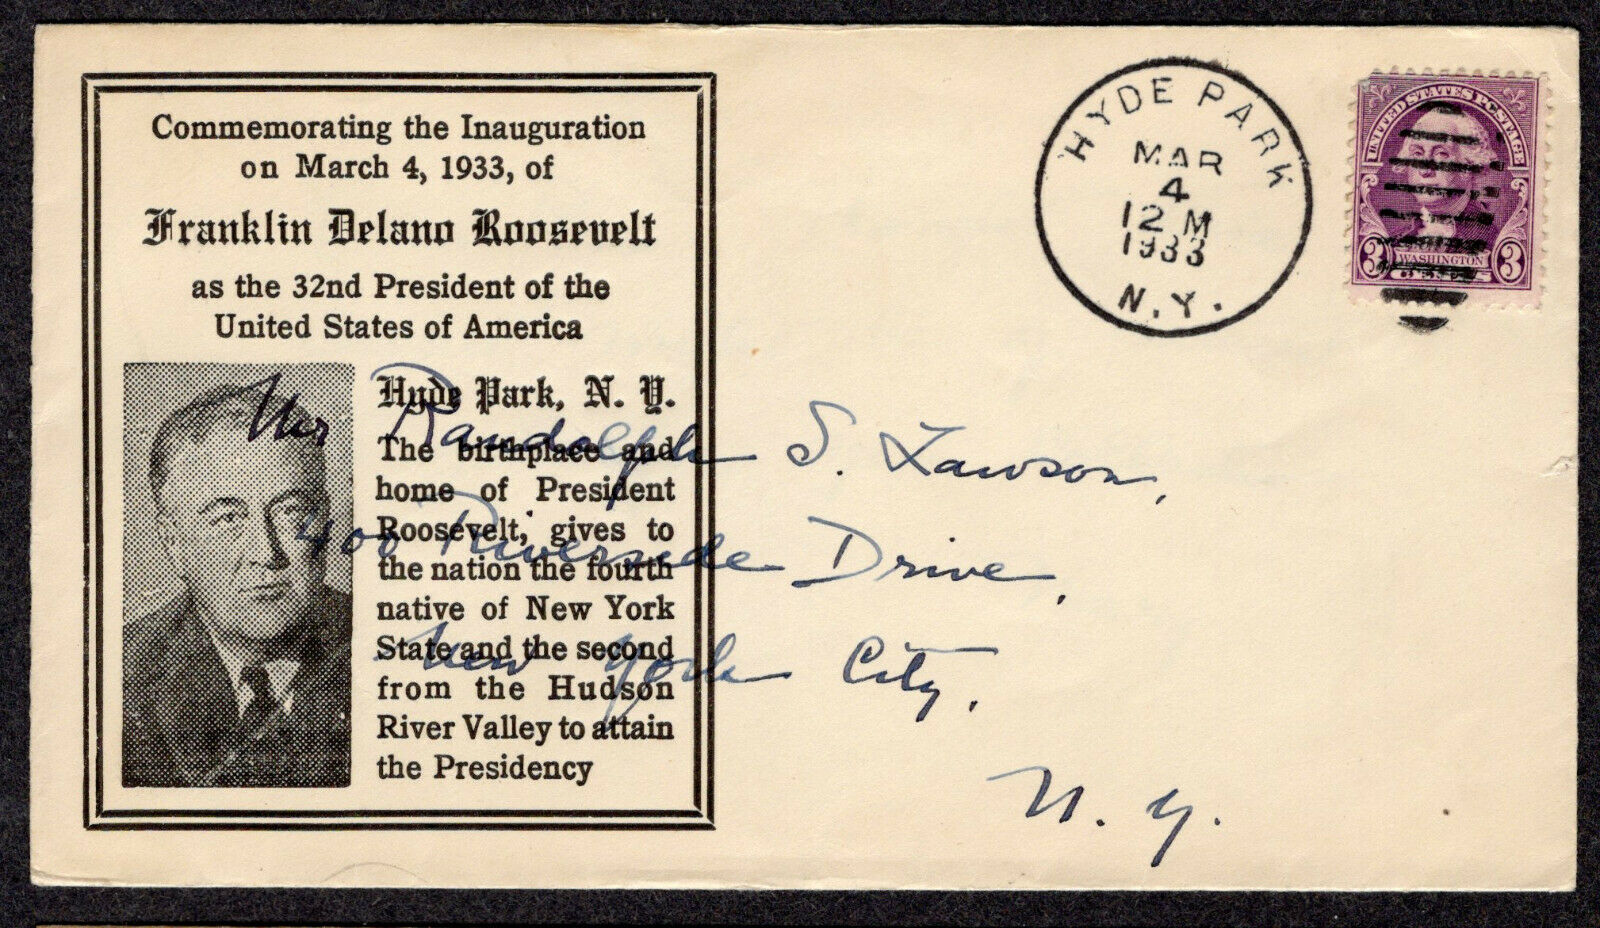 Commemorating the Inauguration
on March 4, 1933, of
Franklin Delano Roosevelt
as the 32nd President of the
United States of America
Hyde Park, N. Y.
The birthplace and
home of President
Roosevelt, gives to
the nation the fourth
native of New York
State and the second
from the Hudson
River Valley to attain
the Presidency
HYDE PARK
MAR
4
12 M
1933
N.Y.
UNITED STATES POSTAGE
3 WASHINGTON 3
Mr Randolph S. Lawson,
400 Riverside Drive,
New York City,
N. Y.